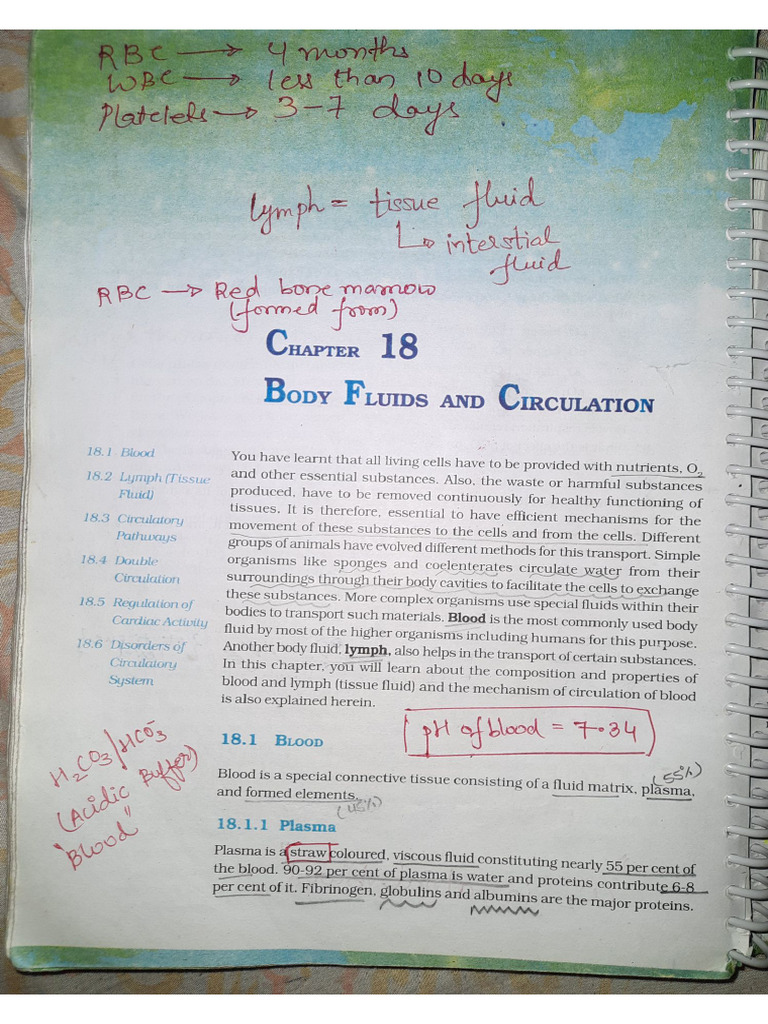 RBC → 4 months
WBC → less than 10 days
Platelets → 3-7 days
lymph = tissue fluid
↳ interstial
fluid
RBC → Red bone marrow
(formed from)
CHAPTER 18
BODY FLUIDS AND CIRCULATION
18.1 Blood
18.2 Lymph (Tissue
Fluid)
18.3 Circulatory
Pathways
18.4 Double
Circulation
18.5 Regulation of
Cardiac Activity
18.6 Disorders of
Circulatory
System
You have learnt that all living cells have to be provided with nutrients, O₂
and other essential substances. Also, the waste or harmful substances
produced, have to be removed continuously for healthy functioning of
tissues. It is therefore, essential to have efficient mechanisms for the
movement of these substances to the cells and from the cells. Different
groups of animals have evolved different methods for this transport. Simple
organisms like sponges and coelenterates circulate water from their
surroundings through their body cavities to facilitate the cells to exchange
these substances. More complex organisms use special fluids within their
bodies to transport such materials. Blood is the most commonly used body
fluid by most of the higher organisms including humans for this purpose.
Another body fluid, lymph, also helps in the transport of certain substances.
In this chapter, you will learn about the composition and properties of
blood and lymph (tissue fluid) and the mechanism of circulation of blood
is also explained herein.
pH of blood = 7.34
18.1 BLOOD
H₂CO₃/HCO₃⁻
(Acidic Buffer)
"Blood"
(55%)
Blood is a special connective tissue consisting of a fluid matrix, plasma,
and formed elements.
(45%)
18.1.1 Plasma
Plasma is a straw coloured, viscous fluid constituting nearly 55 per cent of
the blood. 90-92 per cent of plasma is water and proteins contribute 6-8
per cent of it. Fibrinogen, globulins and albumins are the major proteins.